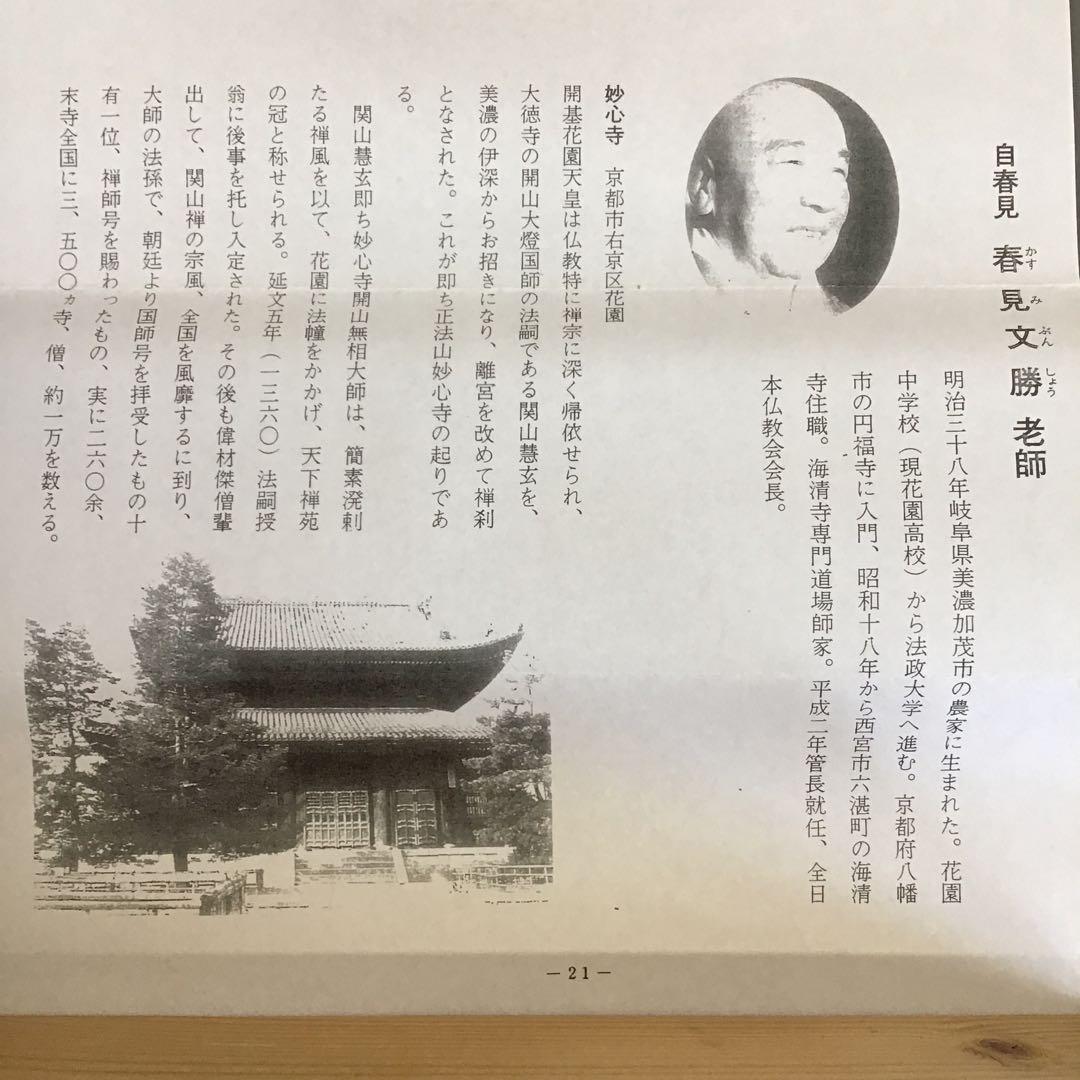 自春見 春見文勝老師
かす み ぶん しょう
明治三十八年岐阜県美濃加茂市の農家に生まれた。花園
中学校（現花園高校）から法政大学へ進む。京都府八幡
市の円福寺に入門、昭和十八年から西宮市六湛町の海清
寺住職。海清寺専門道場師家。平成二年管長就任、全日
本仏教会会長。
妙心寺 京都市右京区花園
開基花園天皇は仏教特に禅宗に深く帰依せられ、
大徳寺の開山大燈国師の法嗣である関山慧玄を、
美濃の伊深からお招きになり、離宮を改めて禅刹
となされた。これが即ち正法山妙心寺の起りであ
る。
関山慧玄即ち妙心寺開山無相大師は、簡素溌剌
たる禅風を以て、花園に法幢をかかげ、天下禅苑
の冠と称せられる。延文五年（一三六〇）法嗣授
翁に後事を托し入定された。その後も偉材傑僧輩
出して、関山禅の宗風、全国を風靡するに到り、
大師の法孫で、朝廷より国師号を拝受したもの十
有一位、禅師号を賜わったもの、実に二六〇余、
末寺全国に三、五〇〇ヵ寺、僧、約一万を数える。
— 21 —